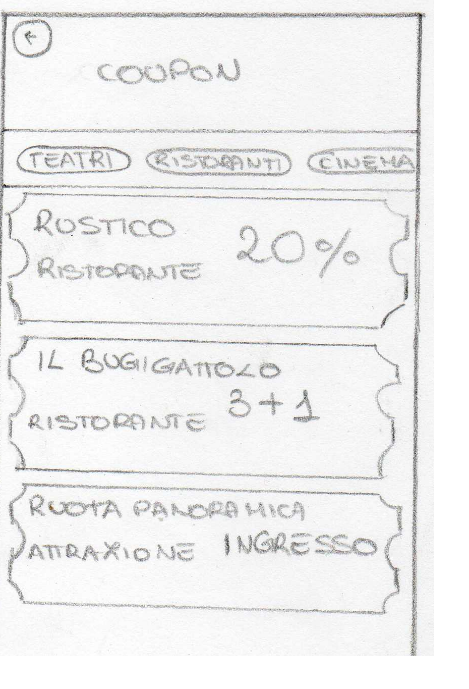 COUPON
TEATRI RISTORANTI CINEMA
RUSTICO
20%
RISTORANTE
IL BUGIGATTOLO
3+1
RISTORANTE
RUOTA PANORAMICA
ATTRAZIONE INGRESSO